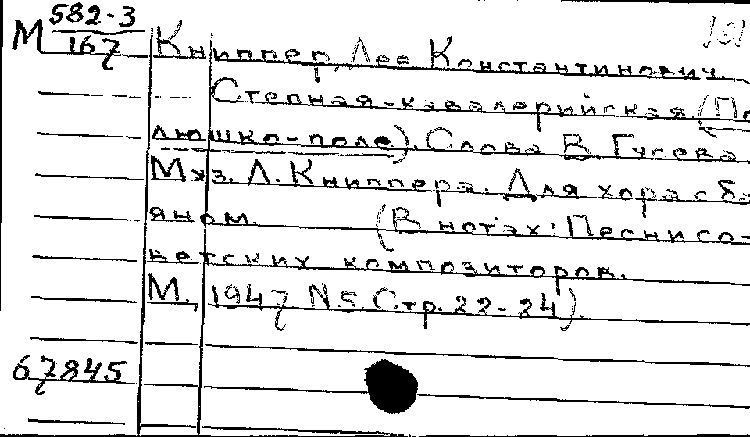 М 582-3
167
Книппер, Лев Константинович.
Степная-кавалерийская (По
люшко-поле). Слова В. Гусева
Муз. Л. Книппера. Для хора с ба
яном. (В нотах: Песни со-
ветских композиторов.
М., 1947 N5. Стр. 22-24).
67845